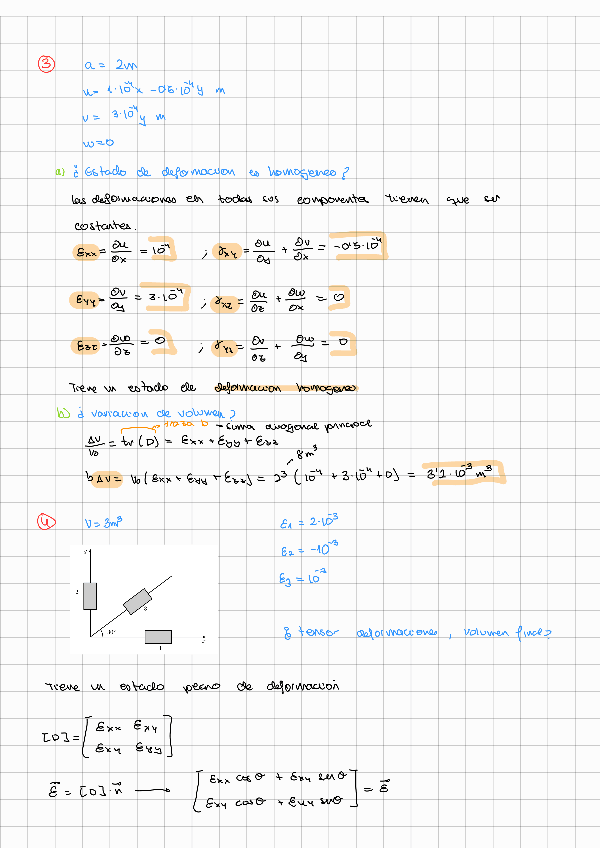 3 a = 2m
u = 1·10⁻⁴x - 0'5·10⁻⁴y m
v = 3·10⁻⁴y m
w=0
a) ¿ Estado de deformacion es homogeneo?
las deformaciones en todas sus componentes tienen que ser
costantes.
εxx = ∂u/∂x = 10⁻⁴ ; γxy = ∂u/∂y + ∂v/∂x = -0'5·10⁻⁴
εyy = ∂v/∂y = 3·10⁻⁴ ; γxz = ∂u/∂z + ∂w/∂x = 0
εzz = ∂w/∂z = 0 ; γyz = ∂v/∂z + ∂w/∂y = 0
Tiene un estado de deformacion homogeneo
b) ¿ variacion de volumen?
traza D - suma diagonal principal
ΔV/V₀ = tr (D) = εxx + εyy + εzz
8m³
ΔV = V₀ (εxx + εyy + εzz) = 2³ (10⁻⁴ + 3·10⁻⁴ + 0) = 3'2·10⁻³ m³
4 V = 3m³ ε1 = 2·10⁻³
ε2 = -10⁻³
ε3 = 10⁻³
¿ tensor deformaciones, volumen final?
Tiene un estado plano de deformacion
[D] = [εxx εxy
εxy εyy]
ε⃗ = [D]·n⃗ → [εxx cosθ + εxy senθ
εxy cosθ + εyy senθ] = ε⃗